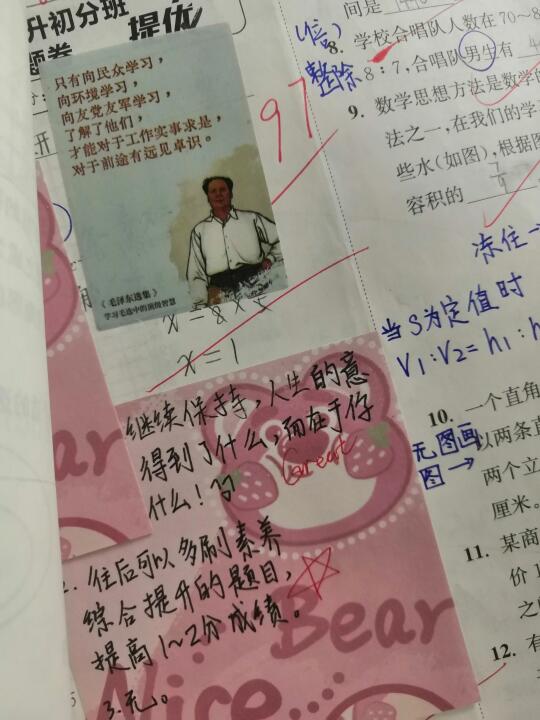 升初分班
提优
题卷
只有向民众学习，
向环境学习，
向友党友军学习，
了解了他们，
才能对于工作实事求是，
对于前途有远见卓识。
《毛泽东选集》
学习毛选中的顶级智慧
97
x=1
继续保持，人生的意
得到了什么，而在于你
什么！
Great
往后可以多刷素养
综合提升的题目，
提高1~2分成绩。
3.无。
Bear
Nice
Bear
ear
间是
(倍)
8. 学校合唱队人数在70~8
整除
8：7，合唱队男生有
9. 数学思想方法是数学的
法之一，在我们的学
些水（如图），根据图
容积的
冻住
当S为定值时
V1:V2=h1:h
10. 一个直角
无图画
图→
以两条直
两个立
厘米。
11. 某商
价1
之
12. 有